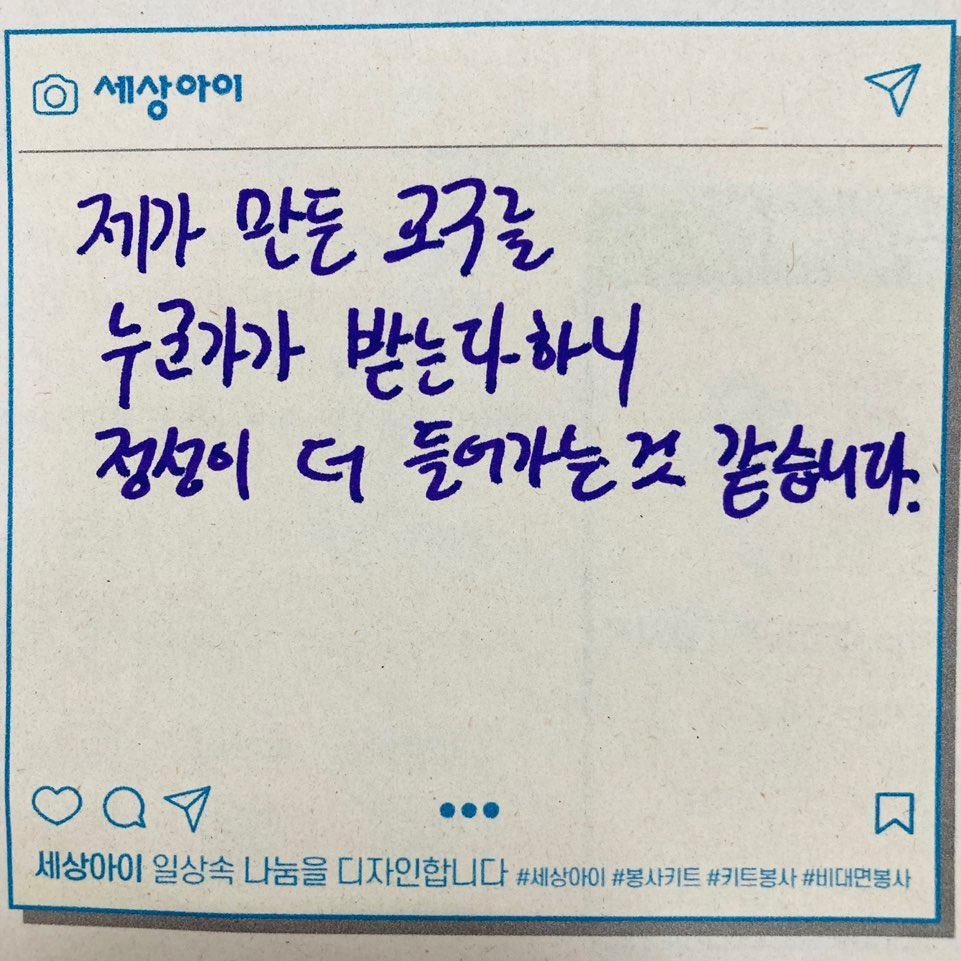 세상아이
제가 만든 교구를
누군가가 받는다하니
정성이 더 들어가는 것 같습니다.
세상아이 일상속 나눔을 디자인합니다 #세상아이 #봉사키트 #키트봉사 #비대면봉사